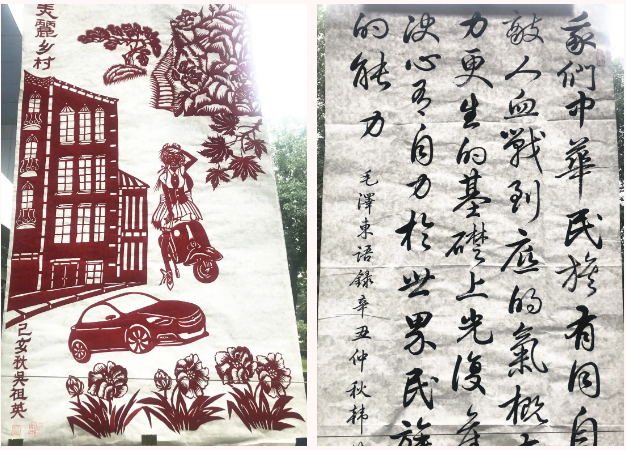 美麗乡村
己亥秋吳祖英
我們中華民族有同自
敵人血戰到底的氣概
力更生的基礎上光復舊
決心有自力於世界民族
的能力
毛澤東語錄辛丑仲秋韩